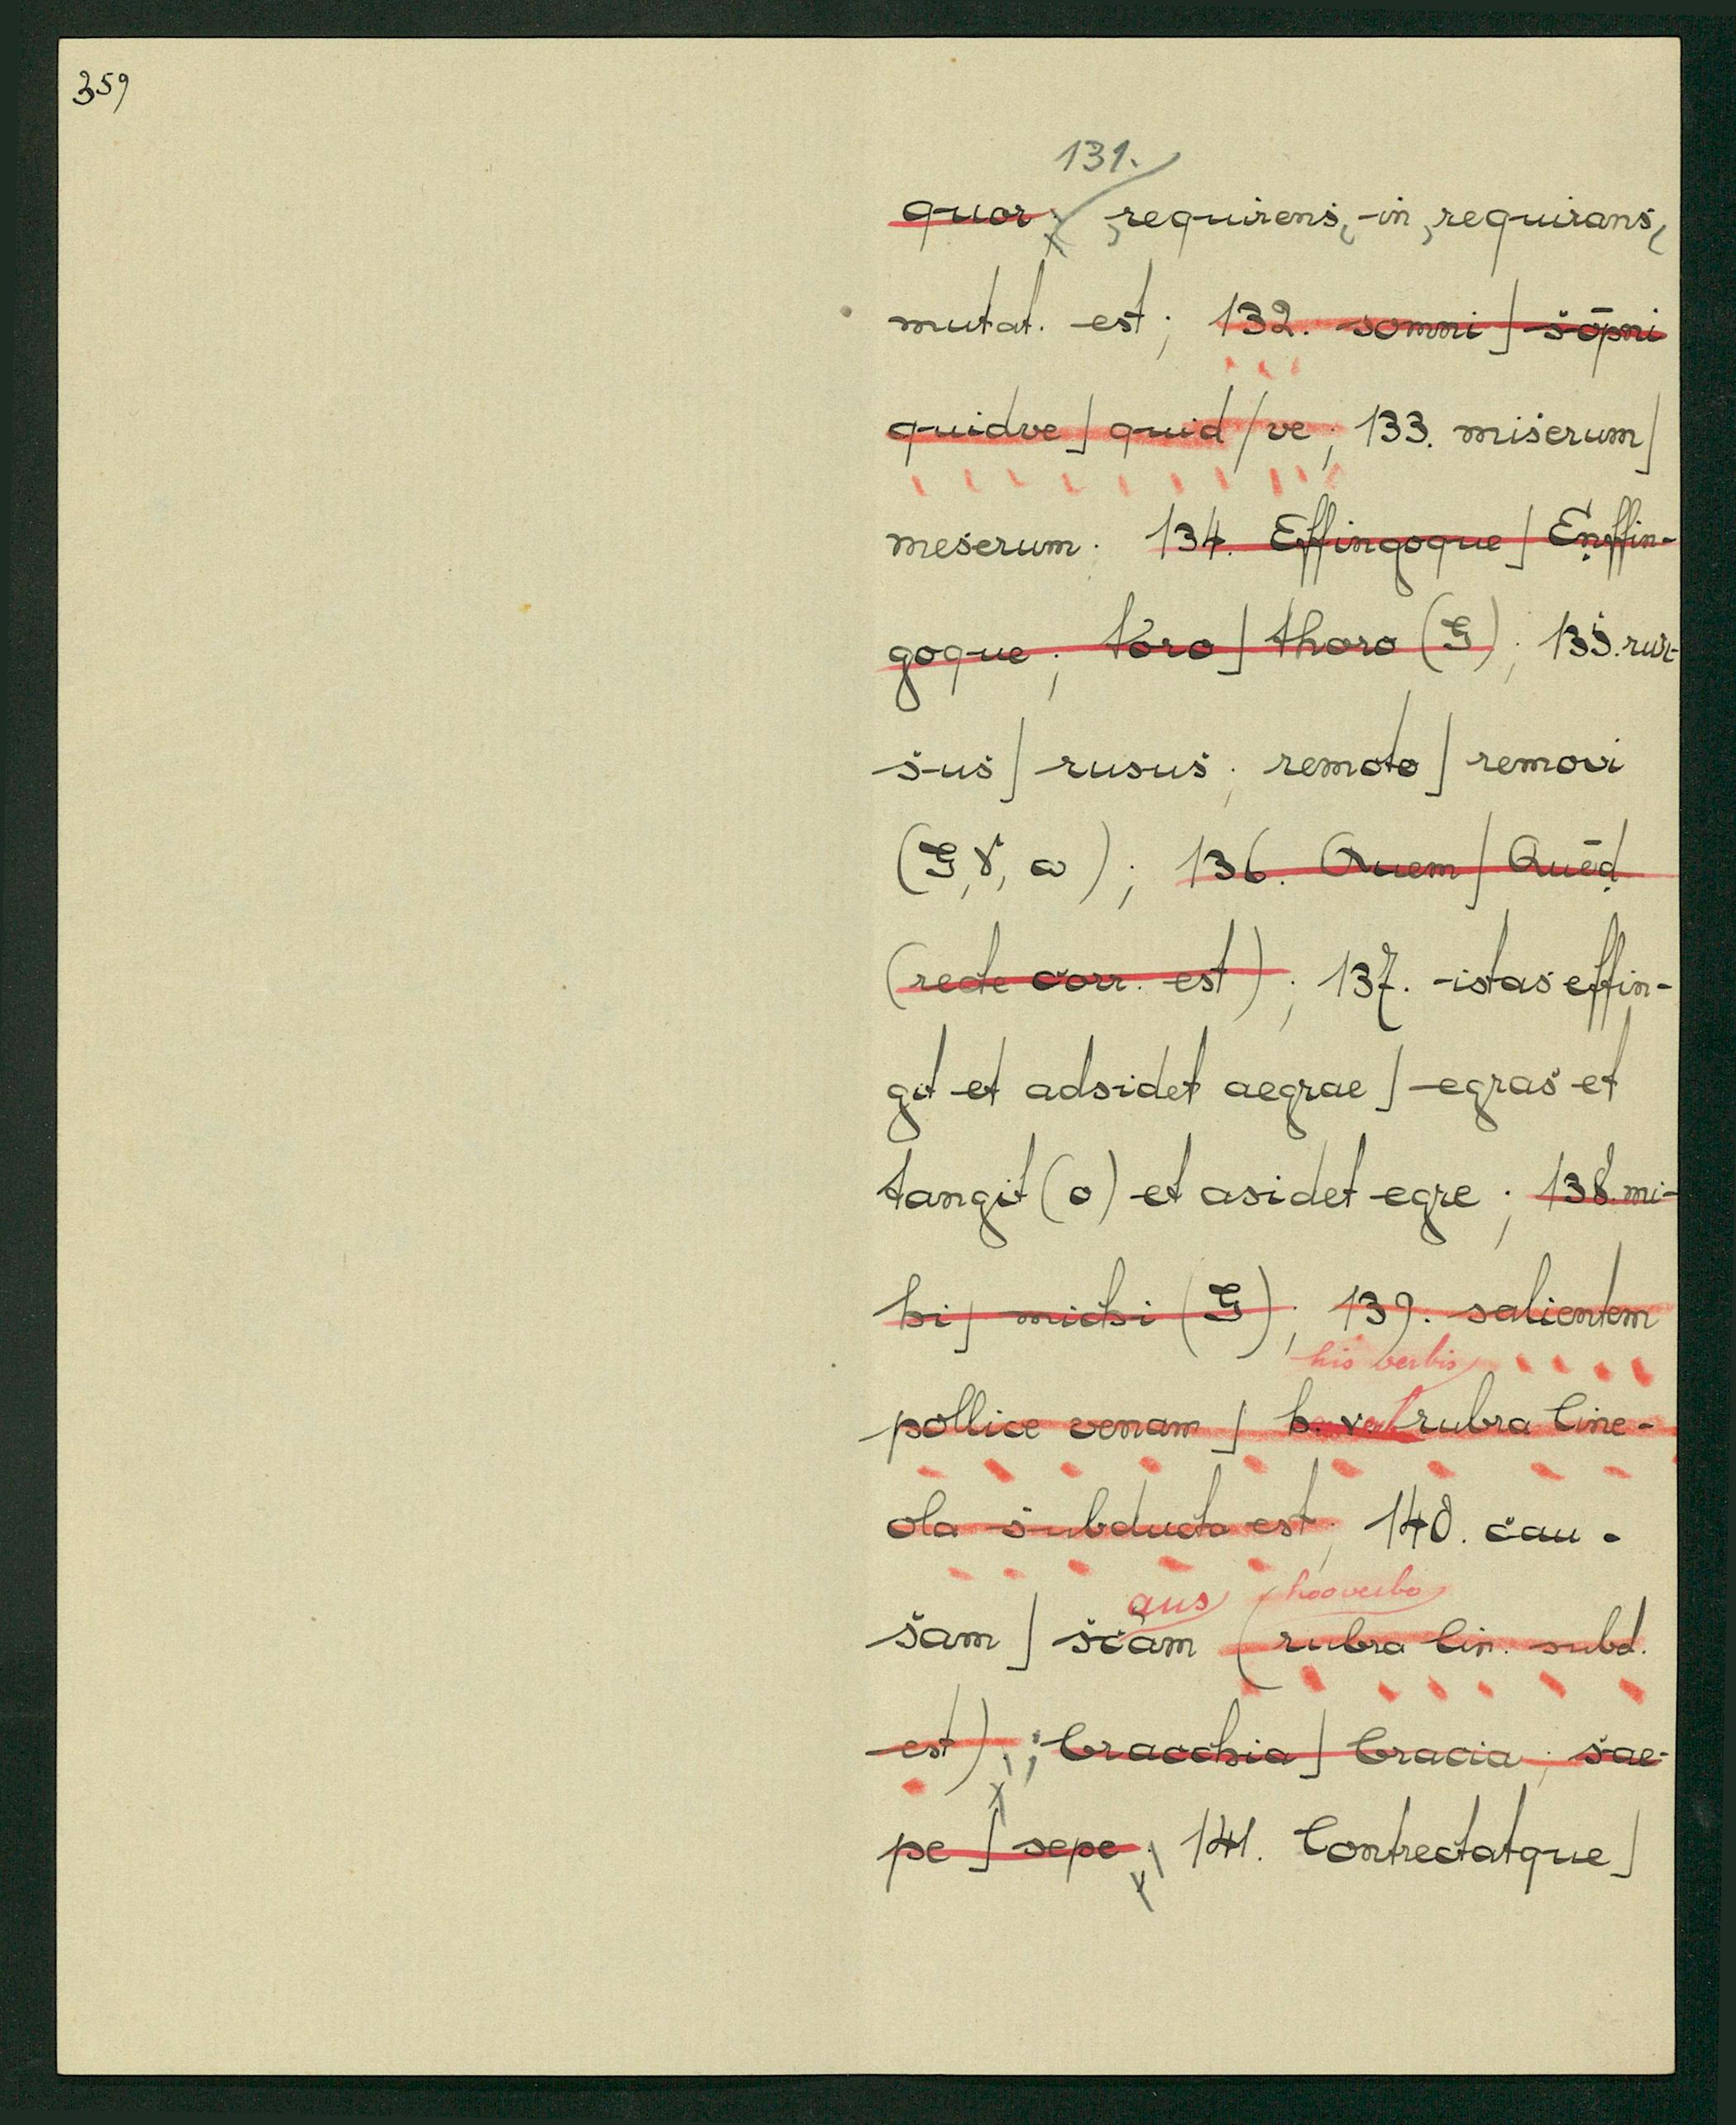 359
131.
quor; ,requirens, in ,requirans,
mutat. est; 132. somni] sōpni
quidve] quid/ve; 133. miserum]
meserum; 134. Effingoque] Enffin-
goque; toro] thoro (G); 135. rur-
sus] rusus; remoto] removi
(G, γ, ω); 136. Quem] Quēd
(recte corr. est); 137. istas effin-
git et adsidet aegrae] egras et
tangit (o) et asidet egre; 138. mi-
hi] michi (G); 139. salientem
his verbis
pollice venam] h. verb. rubra line-
ola subducta est; 140. cau-
aus hoc verbo
sam] scam (rubra lin. subd.
est); bracchia] bracia; sae-
pe] sepe; 141. Contrectatque]